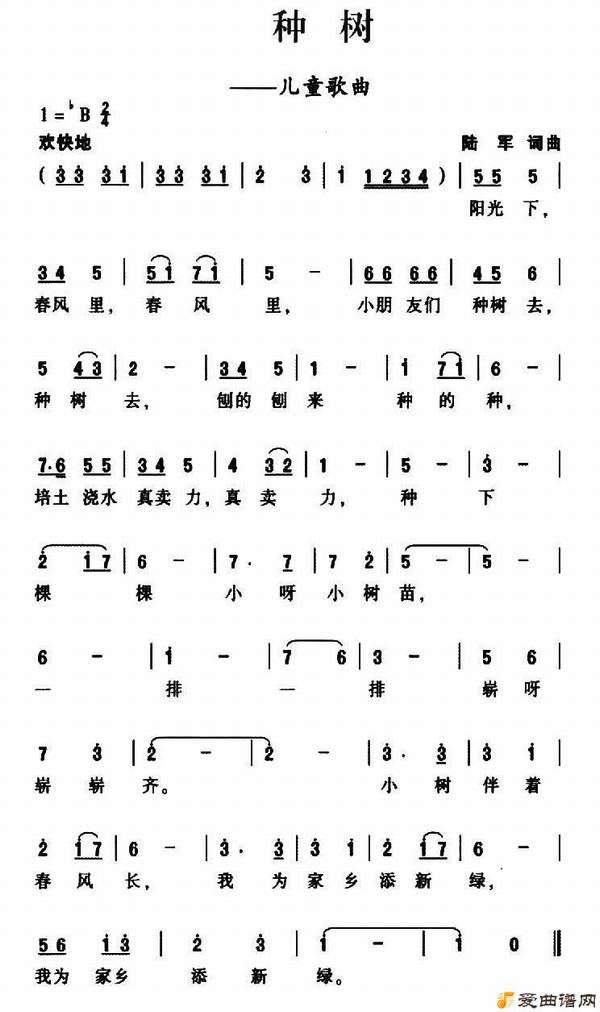 种 树
——儿童歌曲
1=♭B 2/4
欢快地 陆 军 词曲
( 3̇3̇ 3̇1̇ | 3̇3̇ 3̇1̇ | 2̇ 3̇ | 1̇ 1̇2̇3̇4̇ ) | 55 5 |
阳光 下,
34 5 | 51̇ 71̇ | 5 - | 66 66 | 45 6 |
春风 里, 春 风 里, 小朋 友们 种树 去,
5 43 | 2 - | 34 5 | 1̇ - | 1̇ 71̇ | 6 - |
种 树 去, 刨的 刨 来 种 的 种,
7·6 55 | 34 5 | 4 32 | 1 - | 5 - | 3̇ - |
培土 浇水 真卖 力,真 卖 力, 种 下
2̇ 1̇7 | 6 - | 7· 7 | 7 2̇ | 5 - | 5 - |
棵 棵 小 呀 小 树 苗,
6 - | 1̇ - | 7 6 | 3 - | 5 6 |
一 排 一 排 崭 呀
7 3̇ | 2̇ - | 2̇ - | 3̇· 3̇ | 3̇ 1̇ |
崭 崭 齐。 小 树 伴 着
2̇ 1̇7 | 6 - | 3̇· 3̇ | 3̇3̇ 1̇ | 2̇ 1̇7 | 6 - |
春 风 长, 我 为 家 乡 添 新 绿,
56 1̇3̇ | 2̇ 3̇ | 1̇ - | 1̇ 0 ‖
我为 家乡 添 新 绿。
爱曲谱网